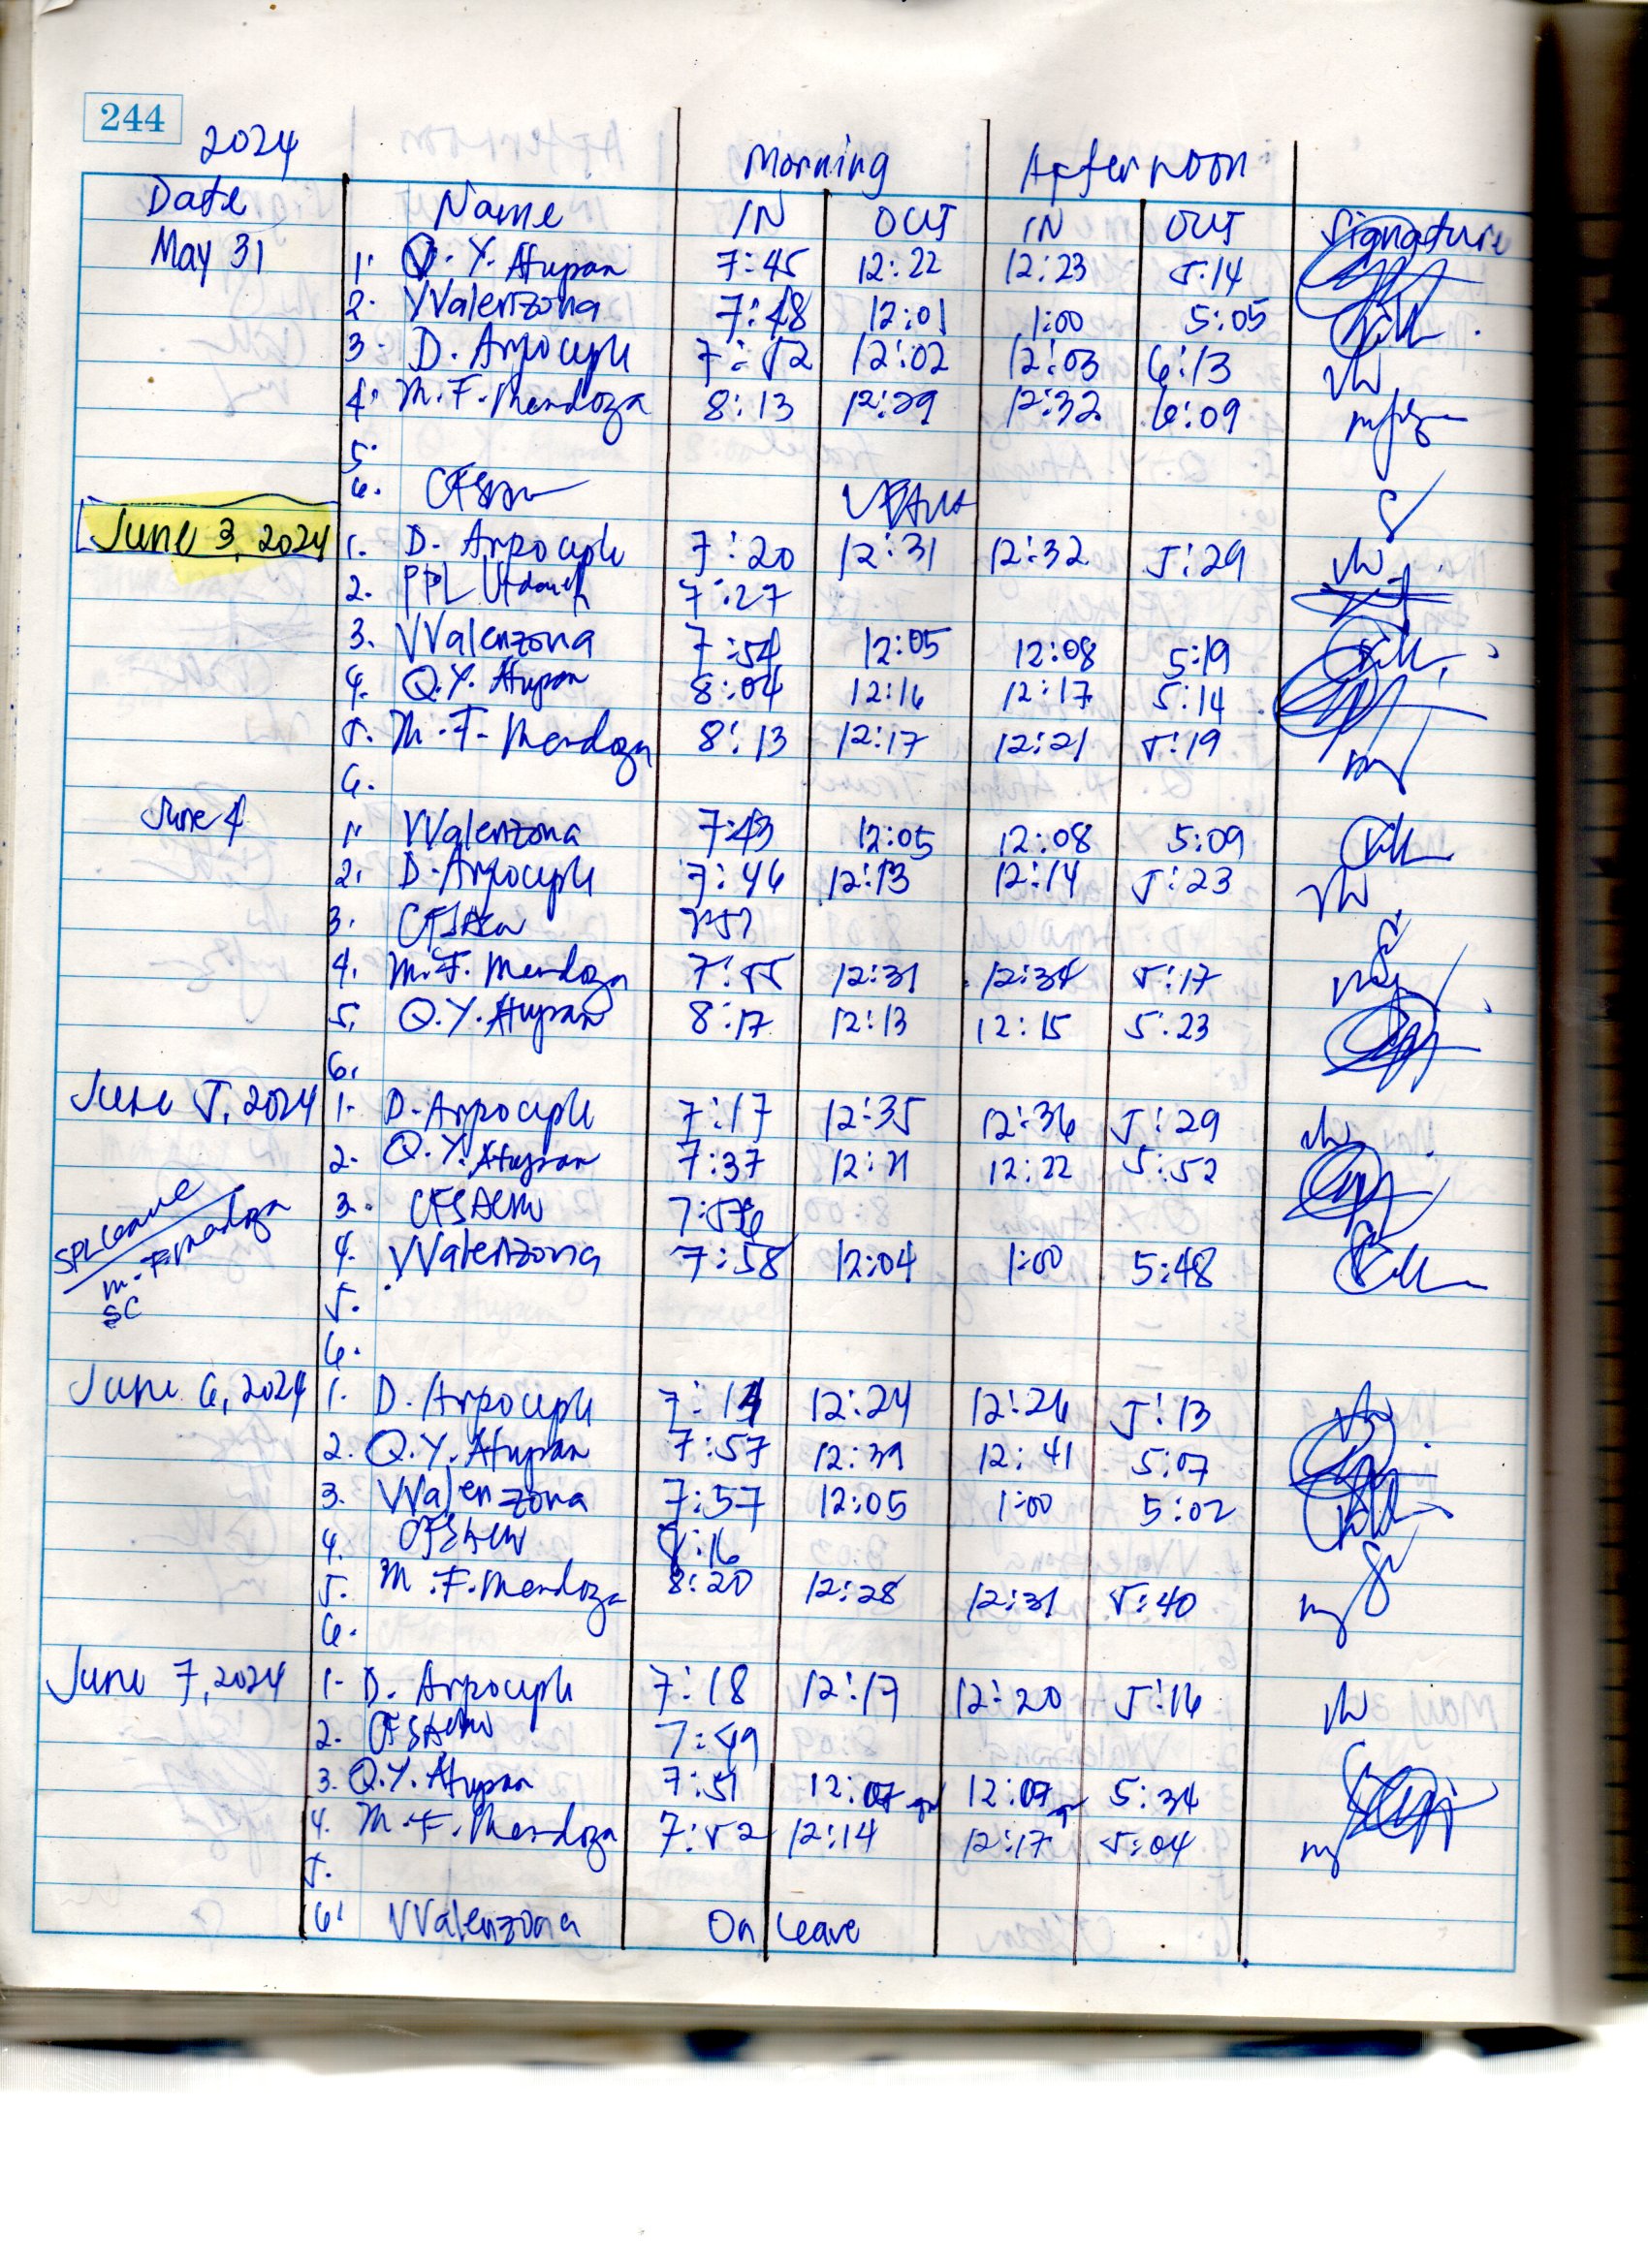 244
2024
Morning Afternoon
Date Name IN OUT IN OUT Signature
May 31 1. Q. Y. Atupan 7:45 12:22 12:23 5:14
2. VValenzona 7:48 12:01 1:00 5:05
3. D. 7:52 12:02 12:03 6:13
4. M. F. Mendoza 8:13 12:29 12:32 6:09
5.
6.
June 3, 2024 1. D. 7:20 12:31 12:32 5:29
2. PPL 7:27
3. VValenzona 7:54 12:05 12:08 5:19
4. Q. Y. Atupan 8:04 12:16 12:17 5:14
5. M. F. Mendoza 8:13 12:17 12:21 5:19
6.
June 4 1. VValenzona 7:43 12:05 12:08 5:09
2. D. 7:46 12:13 12:14 5:23
3.
4. M. F. Mendoza 7:55 12:31 12:34 5:17
5. Q. Y. Atupan 8:17 12:13 12:15 5:23
6.
June 5, 2024 1. D. 7:17 12:35 12:36 5:29
2. Q. Y. Atupan 7:37 12:21 12:22 5:52
SPL Leave 3.
M. F. Mendoza 4. VValenzona 7:58 12:04 1:00 5:48
SC 5.
6.
June 6, 2024 1. D. 7:14 12:24 12:26 5:13
2. Q. Y. Atupan 7:57 12:39 12:41 5:07
3. VValenzona 7:57 12:05 1:00 5:02
4. 8:16
5. M. F. Mendoza 8:20 12:28 12:31 5:40
6.
June 7, 2024 1. D. 7:18 12:17 12:20 5:16
2. 7:49
3. Q. Y. Atupan 7:51 12:07 12:09 5:34
4. M. F. Mendoza 7:52 12:14 12:17 5:04
5.
6. VValenzona On Leave